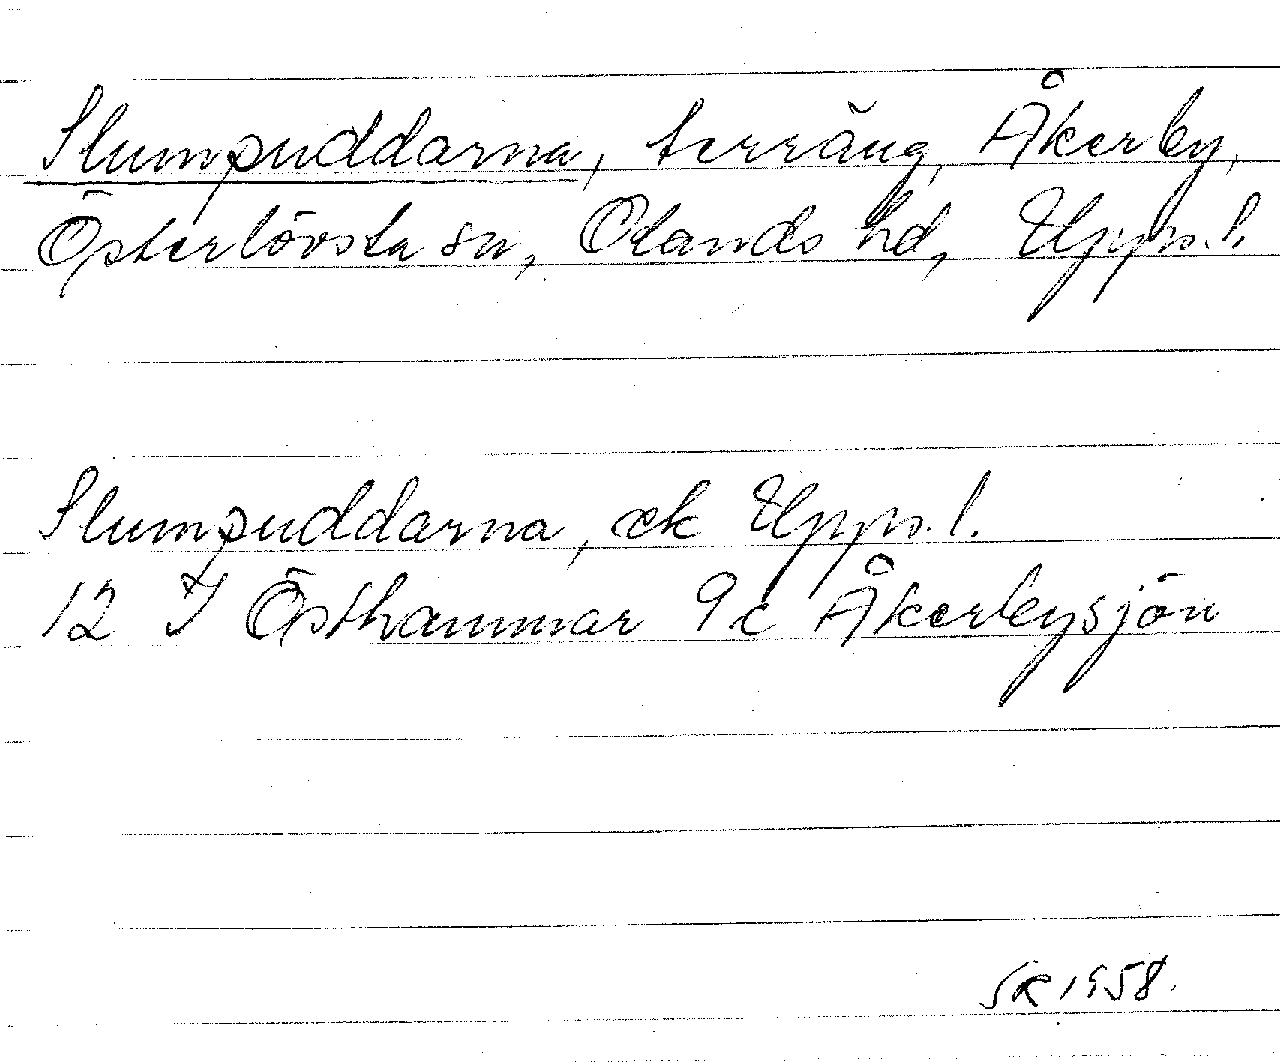 Slumpuddarna, terräng, Åkerby,
Österlövsta sn, Olands hd, Upps. l.
Slumpuddarna, ek Upps. l.
12 I Östhammar 9c Åkerbysjön
SR 1958.